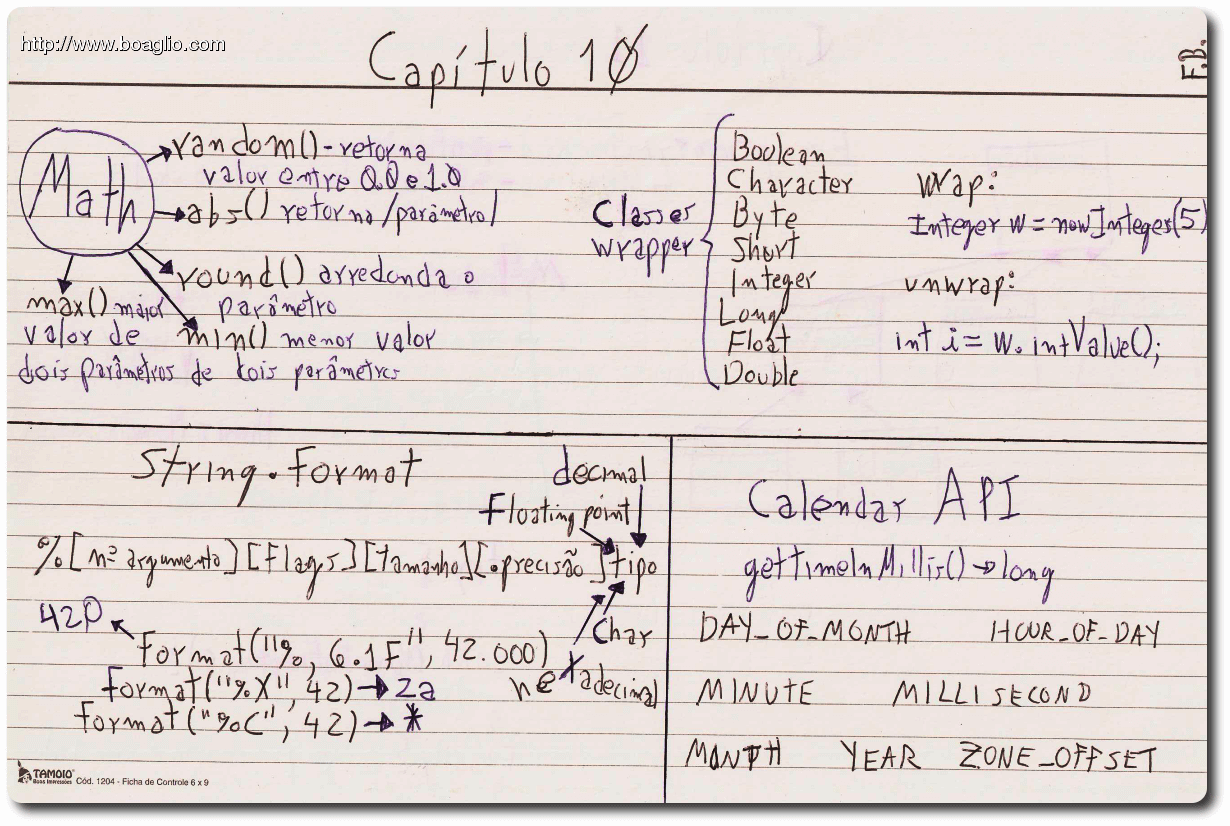 http://www.boaglio.com
Capítulo 10
F.B.
Math
random() - retorna
valor entre 0.0 e 1.0
abs() retorna /parâmetro/
round() arredonda o
parâmetro
max() maior
valor de
dois parâmetros
min() menor valor
de dois parâmetros
Classes
wrapper
Boolean
Character
Byte
Short
Integer
Long
Float
Double
Wrap:
Integer w = new Integer(5)
unwrap:
int i = w.intValue();
String.Format
decimal
Floating point
%[nº argumento][Flags][tamanho][.precisão]tipo
Char
hexadecimal
420
format("%, 6.1F", 42.000)
format("%X", 42) → 2a
format("%C", 42) → *
Calendar API
getTimeInMillis() → long
DAY_OF_MONTH HOUR_OF_DAY
MINUTE MILLISECOND
MONTH YEAR ZONE_OFFSET
TAMOIO
Boas Impressões
Cód. 1204 - Ficha de Controle 6 x 9